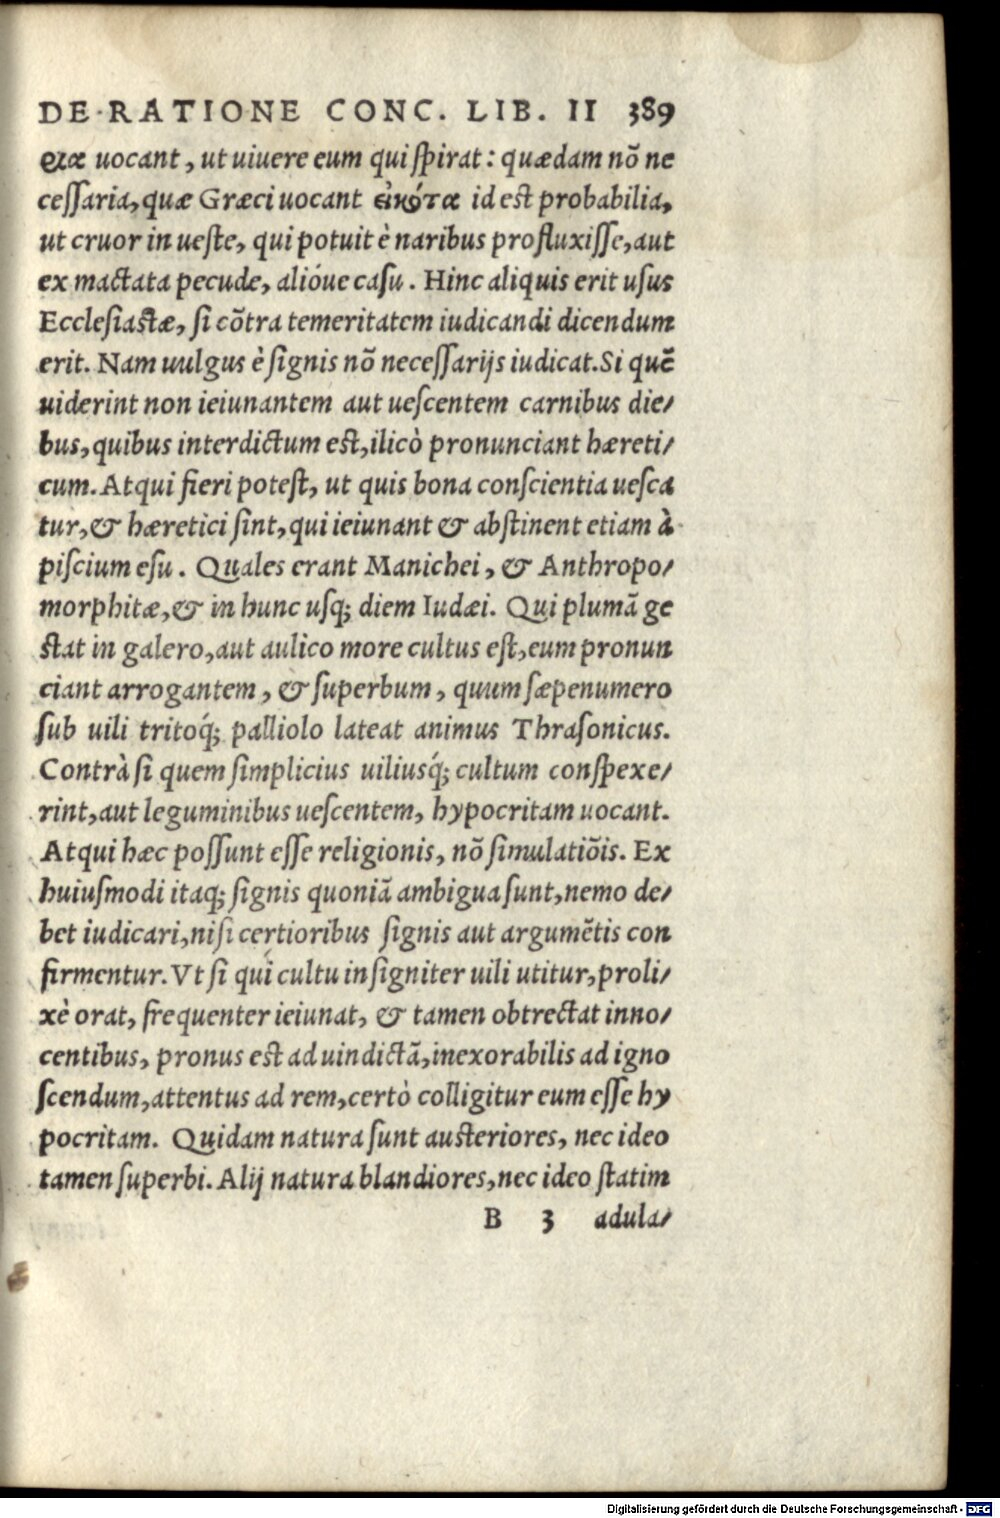 DE RATIONE CONC. LIB. II 389
ρια uocant, ut uiuere eum qui ſpirat: quædam nõ ne
ceſſaria, quæ Græci uocant εἰκότα id est probabilia,
ut cruor in ueſte, qui potuit è naribus profluxiſſe, aut
ex mactata pecude, alióue caſu. Hinc aliquis erit uſus
Eccleſiastæ, ſi cõtra temeritatem iudicandi dicendum
erit. Nam uulgus è ſignis nõ neceſſarijs iudicat. Si quẽ
uiderint non ieiunantem aut ueſcentem carnibus die/
bus, quibus interdictum est, ilicò pronunciant hæreti/
cum. Atqui fieri poteſt, ut quis bona conſcientia ueſca
tur, & hæretici ſint, qui ieiunant & abstinent etiam à
piſcium eſu. Quales erant Manichei, & Anthropo/
morphitæ, & in hunc uſq; diem Iudæi. Qui plumã ge
stat in galero, aut aulico more cultus eſt, eum pronun
ciant arrogantem, & ſuperbum, quum ſæpenumero
ſub uili tritoq́; palliolo lateat animus Thraſonicus.
Contrà ſi quem ſimplicius uiliusq́; cultum conſpexe/
rint, aut leguminibus ueſcentem, hypocritam uocant.
Atqui hæc poſſunt eſſe religionis, nõ ſimulatiõis. Ex
huiuſmodi itaq; ſignis quoniã ambigua ſunt, nemo de/
bet iudicari, niſi certioribus ſignis aut argumẽtis con
firmentur. Vt ſi qui cultu inſigniter uili utitur, proli/
xè orat, frequenter ieiunat, & tamen obtrectat inno/
centibus, pronus est ad uindictã, inexorabilis ad igno
ſcendum, attentus ad rem, certò colligitur eum eſſe hy
pocritam. Quidam natura ſunt austeriores, nec ideo
tamen ſuperbi. Alij natura blandiores, nec ideo ſtatim
B 3 adula/
Digitalisierung gefördert durch die Deutsche Forschungsgemeinschaft - DFG